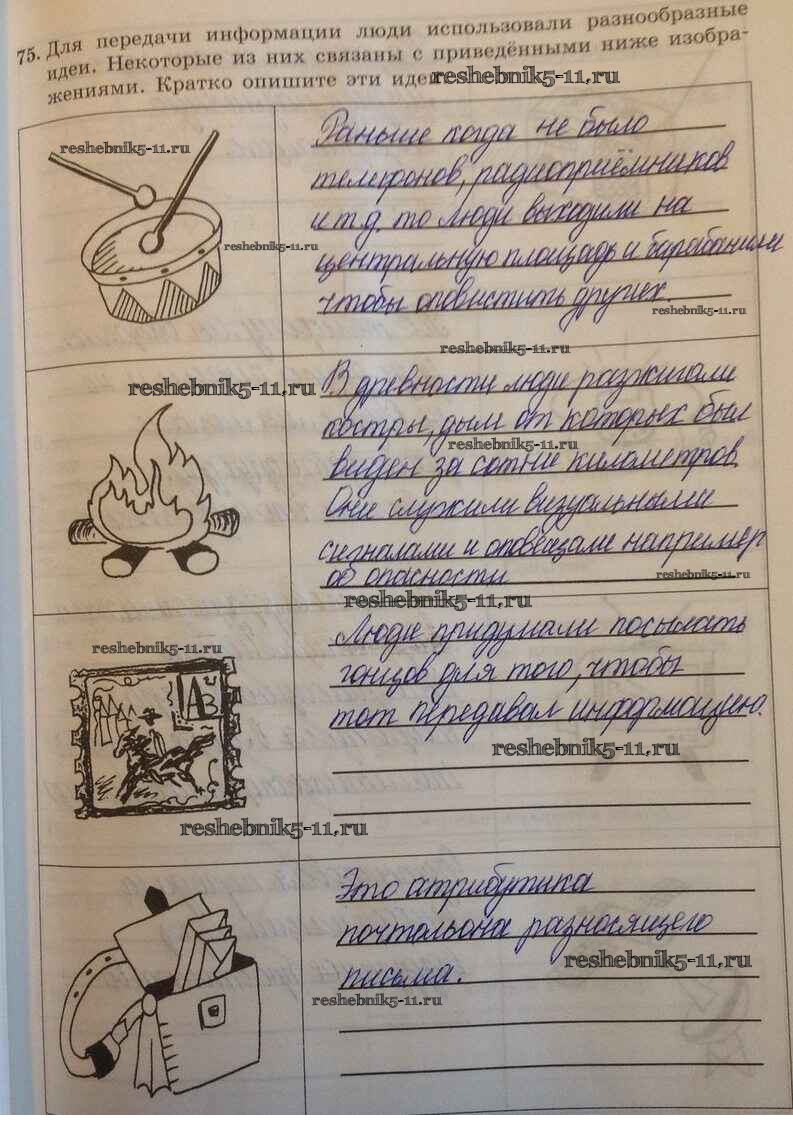 75. Для передачи информации люди использовали разнообразные
идеи. Некоторые из них связаны с приведёнными ниже изобра-
жениями. Кратко опишите эти идеи
reshebnik5-11.ru
reshebnik5-11.ru
Раньше когда не было
телефонов, радиоприёмников
и т.д. то люди выходили на
reshebnik5-11.ru
центральную площадь и барабанили
чтобы оповистить других.
reshebnik5-11.ru
reshebnik5-11.ru
reshebnik5-11.ru
В древности люди разжигали
костры, дым от которых был
reshebnik5-11.ru
виден за сотни километров.
Они служили визуальными
сигналами и оповещали например
об опасности
reshebnik5-11.ru
reshebnik5-11.ru
reshebnik5-11.ru
АЗ
Люди придумали посылать
гонцов для того, чтобы
тот передавал информацию.
reshebnik5-11.ru
reshebnik5-11.ru
Это атрибутика
почтальона разносящего
reshebnik5-11.ru
письма.
reshebnik5-11.ru